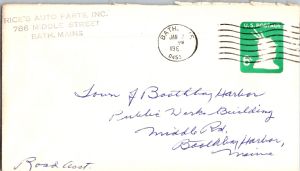 RICE'S AUTO PARTS, INC.
786 MIDDLE STREET
BATH, MAINE
BATH, ME
JAN
PM
196
U.S. POSTAGE
Town of Boothbay Harbor
Public Works Building
Middle Rd,
Boothbay Harbor,
Maine
Road Asst.